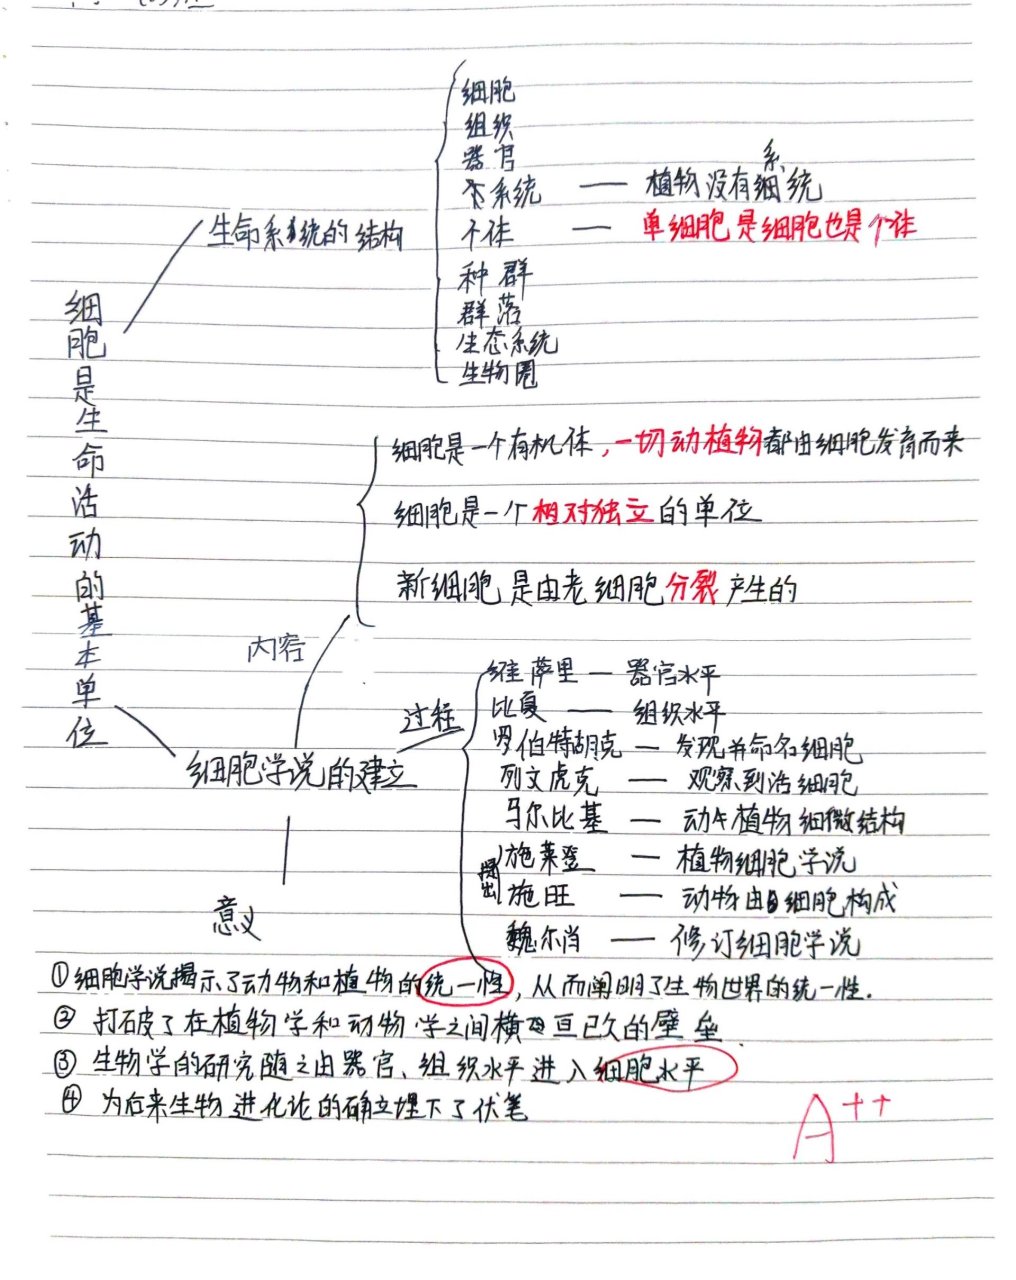 细胞是生命活动的基本单位
生命系统的结构
细胞
组织
器官
系统 — 植物没有系统
个体 — 单细胞是细胞也是个体
种群
群落
生态系统
生物圈
细胞学说的建立
内容
细胞是一个有机体,一切动植物都由细胞发育而来
细胞是一个相对独立的单位
新细胞是由老细胞分裂产生的
过程
维萨里 — 器官水平
比夏 — 组织水平
罗伯特胡克 — 发现并命名细胞
列文虎克 — 观察到活细胞
马尔比基 — 动植物细微结构
提出
施莱登 — 植物细胞学说
施旺 — 动物由细胞构成
魏尔肖 — 修订细胞学说
意义
①细胞学说揭示了动物和植物的统一性,从而阐明了生物世界的统一性.
② 打破了在植物学和动物学之间横亘已久的壁垒.
③ 生物学的研究随之由器官、组织水平进入细胞水平
④ 为后来生物进化论的确立埋下了伏笔
A++